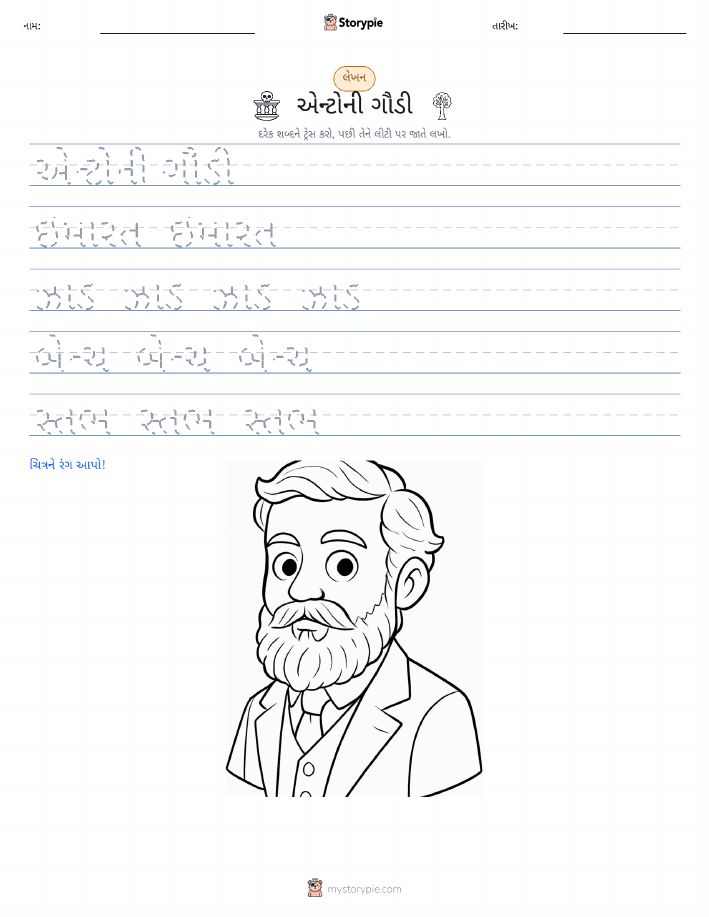 નામ: Storypie તારીખ:
લેખન
એન્ટોની ગૌડી
દરેક શબ્દને ટ્રેસ કરો, પછી તેને લીટી પર જાતે લખો.
એન્ટોની ગૌડી
ઈમારત ઈમારત
ઝાડ ઝાડ ઝાડ ઝાડ
બેન્ચ બેન્ચ બેન્ચ
સ્તંભ સ્તંભ સ્તંભ
ચિત્રને રંગ આપો!
mystorypie.com